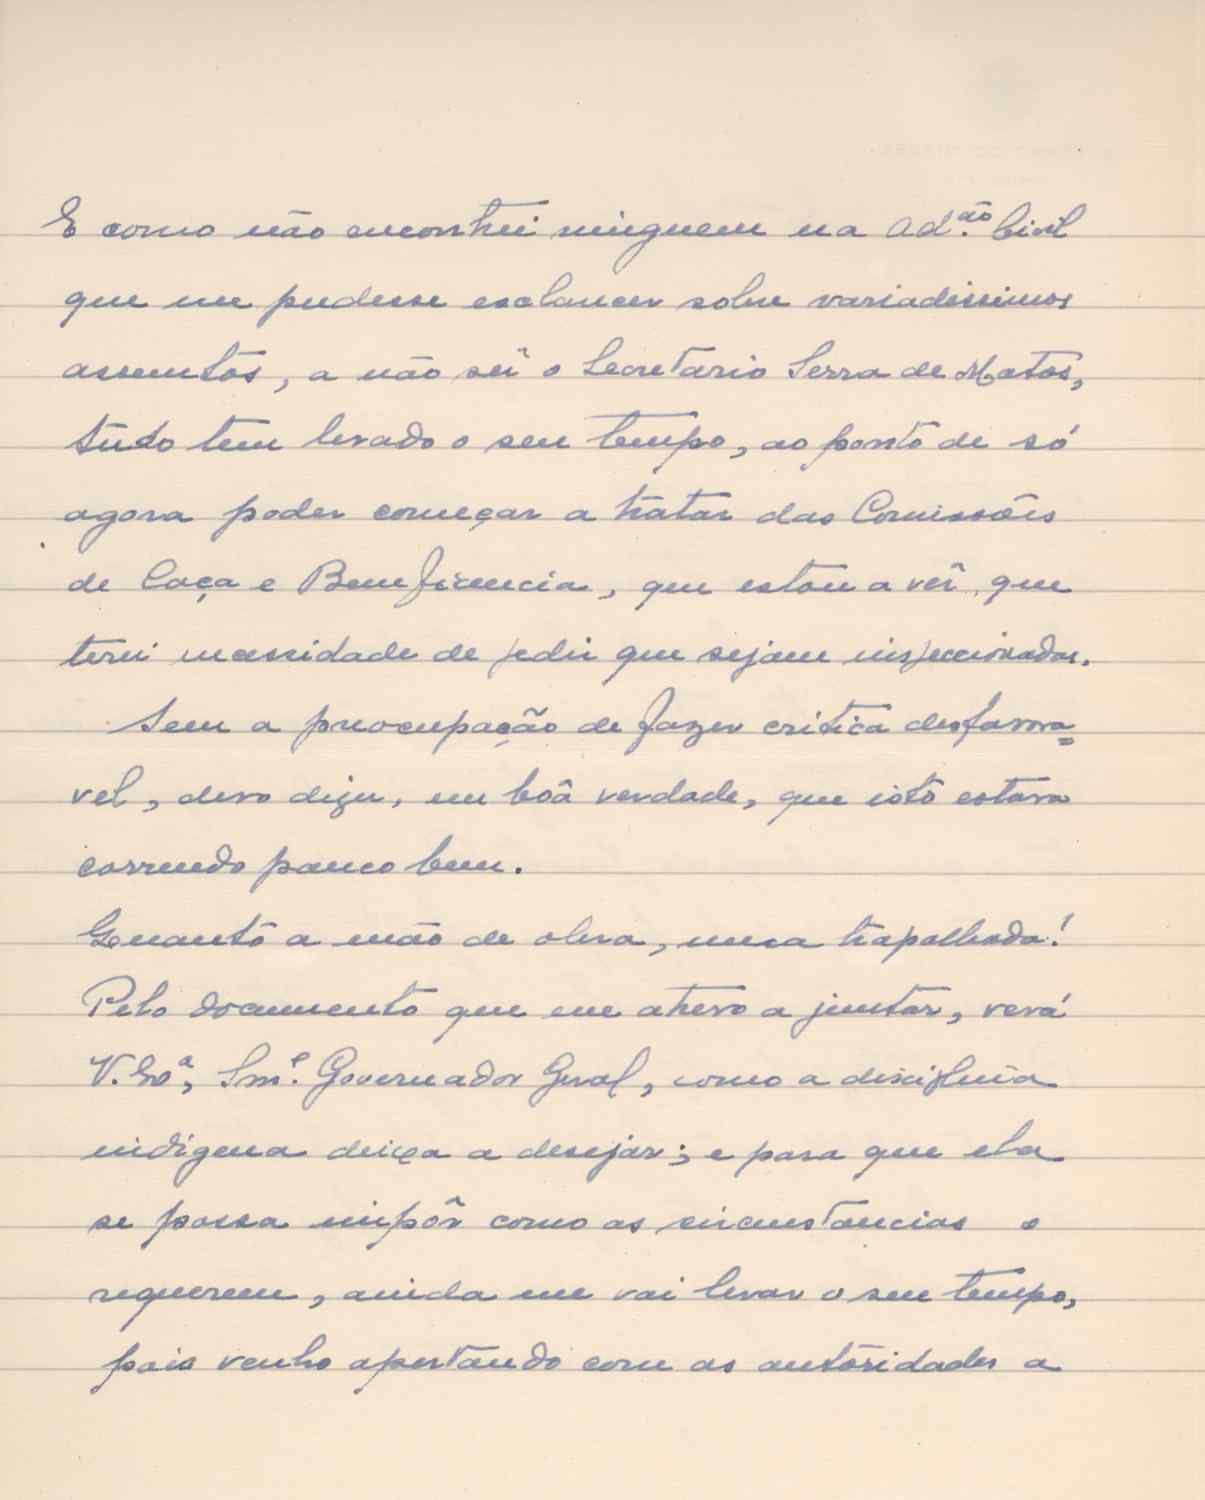 E como não encontrei ninguem na Ad.ão Civil
que me pudesse esclarecer sobre variadissimos
assuntos, a não sêr o Secretario Serra de Matos,
tudo tem levado o seu tempo, ao ponto de só
agora poder começar a tratar das Comissões
de Caça e Beneficencia, que estou a vêr que
terei necessidade de pedir que sejam inspeccionadas.
Sem a preocupação de fazer critica desfavora=
vel, devo dizer, em boâ verdade, que isto estava
correndo pouco bem.
Quanto a mão de obra, uma trapalhada!
Pelo documento que me atrevo a juntar, verá
V. Exª, Snr. Governador Geral, como a disciplina
indigena deixa a desejar; e para que ela
se possa impôr como as circunstancias o
requerem, ainda me vai levar o seu tempo,
pois venho apertando com as autoridades a